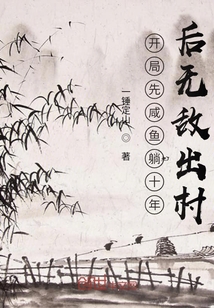 开局先咸鱼躺十年
后无敌出村
一锤定山◎著